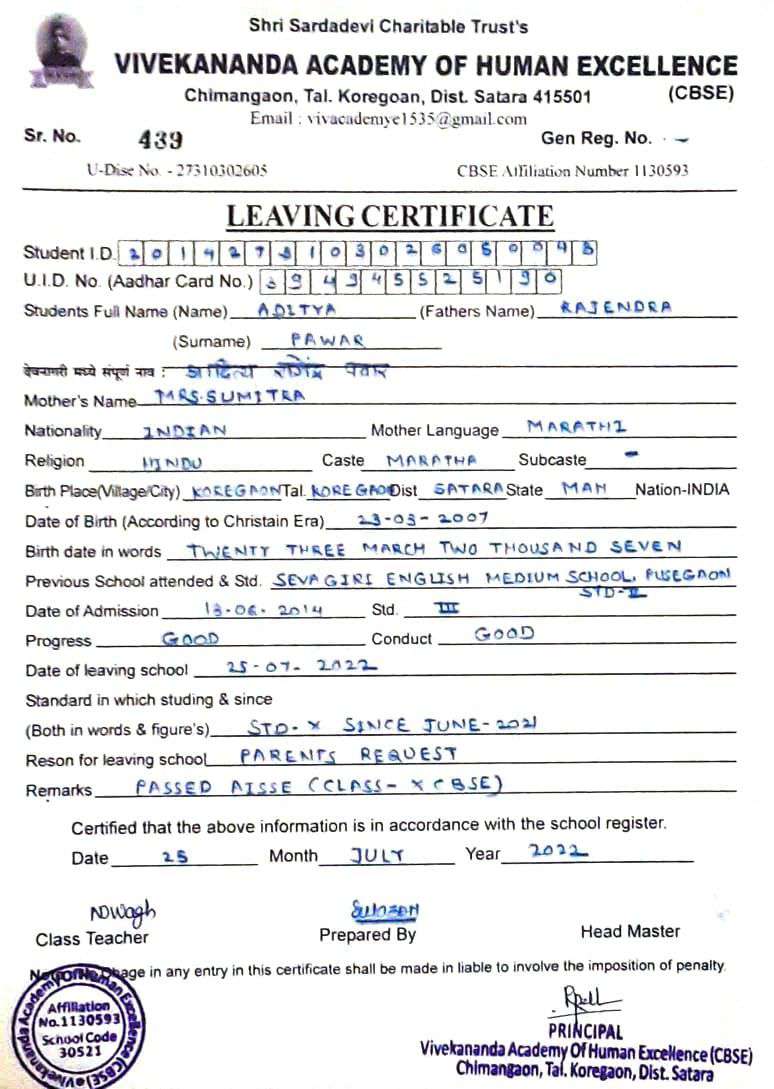 Shri Sardadevi Charitable Trust's
VIVEKANANDA ACADEMY OF HUMAN EXCELLENCE
(CBSE)
Chimangaon, Tal. Koregoan, Dist. Satara 415501
Email : vivacademye1535@gmail.com
Sr. No. 439 Gen Reg. No. -
U-Dise No. - 27310302605 CBSE Affiliation Number 1130593
LEAVING CERTIFICATE
Student I.D. 2014273103026050048
U.I.D. No. (Aadhar Card No.) 394945525190
Students Full Name (Name) ADITYA (Fathers Name) RAJENDRA
(Surname) PAWAR
देवनागरी मध्ये संपूर्ण नाव : आदित्य राजेंद्र पवार
Mother's Name MRS.SUMITRA
Nationality INDIAN Mother Language MARATHI
Religion HINDU Caste MARATHA Subcaste -
Birth Place(Village/City) KOREGAON Tal. KOREGAON Dist SATARA State MAH Nation-INDIA
Date of Birth (According to Christain Era) 23-03-2007
Birth date in words TWENTY THREE MARCH TWO THOUSAND SEVEN
Previous School attended & Std. SEVAGIRI ENGLISH MEDIUM SCHOOL, PUSEGAON
STD-II
Date of Admission 13-06-2014 Std. III
Progress GOOD Conduct GOOD
Date of leaving school 25-07-2022
Standard in which studing & since
(Both in words & figure's) STD-X SINCE JUNE-2021
Reson for leaving school PARENTS REQUEST
Remarks PASSED AISSE (CLASS-X CBSE)
Certified that the above information is in accordance with the school register.
Date 25 Month JULY Year 2022
NDWagh
Class Teacher Prepared By Head Master
No Chage in any entry in this certificate shall be made in liable to involve the imposition of penalty.
Vivekananda Academy Of Human Excellence (CBSE)
Affiliation
No.1130593
School Code
30521
PRINCIPAL
Vivekananda Academy Of Human Excellence (CBSE)
Chimangaon, Tal. Koregaon, Dist. Satara